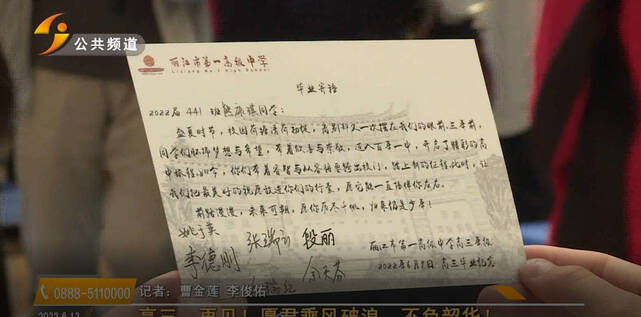 公共频道
丽江市第一高级中学
Lijiang No.1 High School
毕业寄语
2022届441班 同学:
盛夏时节,校园荷塘清荷初绽,离别却又一次摆在我们的眼前,三年前,
同学们 梦想与希望,带着 与 ,迈入百年一中,开启了精彩的高
中旅程。如今,你们带着睿智与从容 要跨出校门,踏上新的征程。此时,让
我们把最美好的祝愿放进你们的行囊,愿它能一直陪伴你左右。
前路漫漫,未来可期,愿你历尽千帆,归来仍是少年!
张瑞 段丽
李德刚
丽江市第一高级中学高三年级
2022年6月9日 高三毕业纪念
0888-5110000 记者:曹金莲 李俊佑
2022.6.13
高三,再见!愿君乘风破浪,不负韶华!